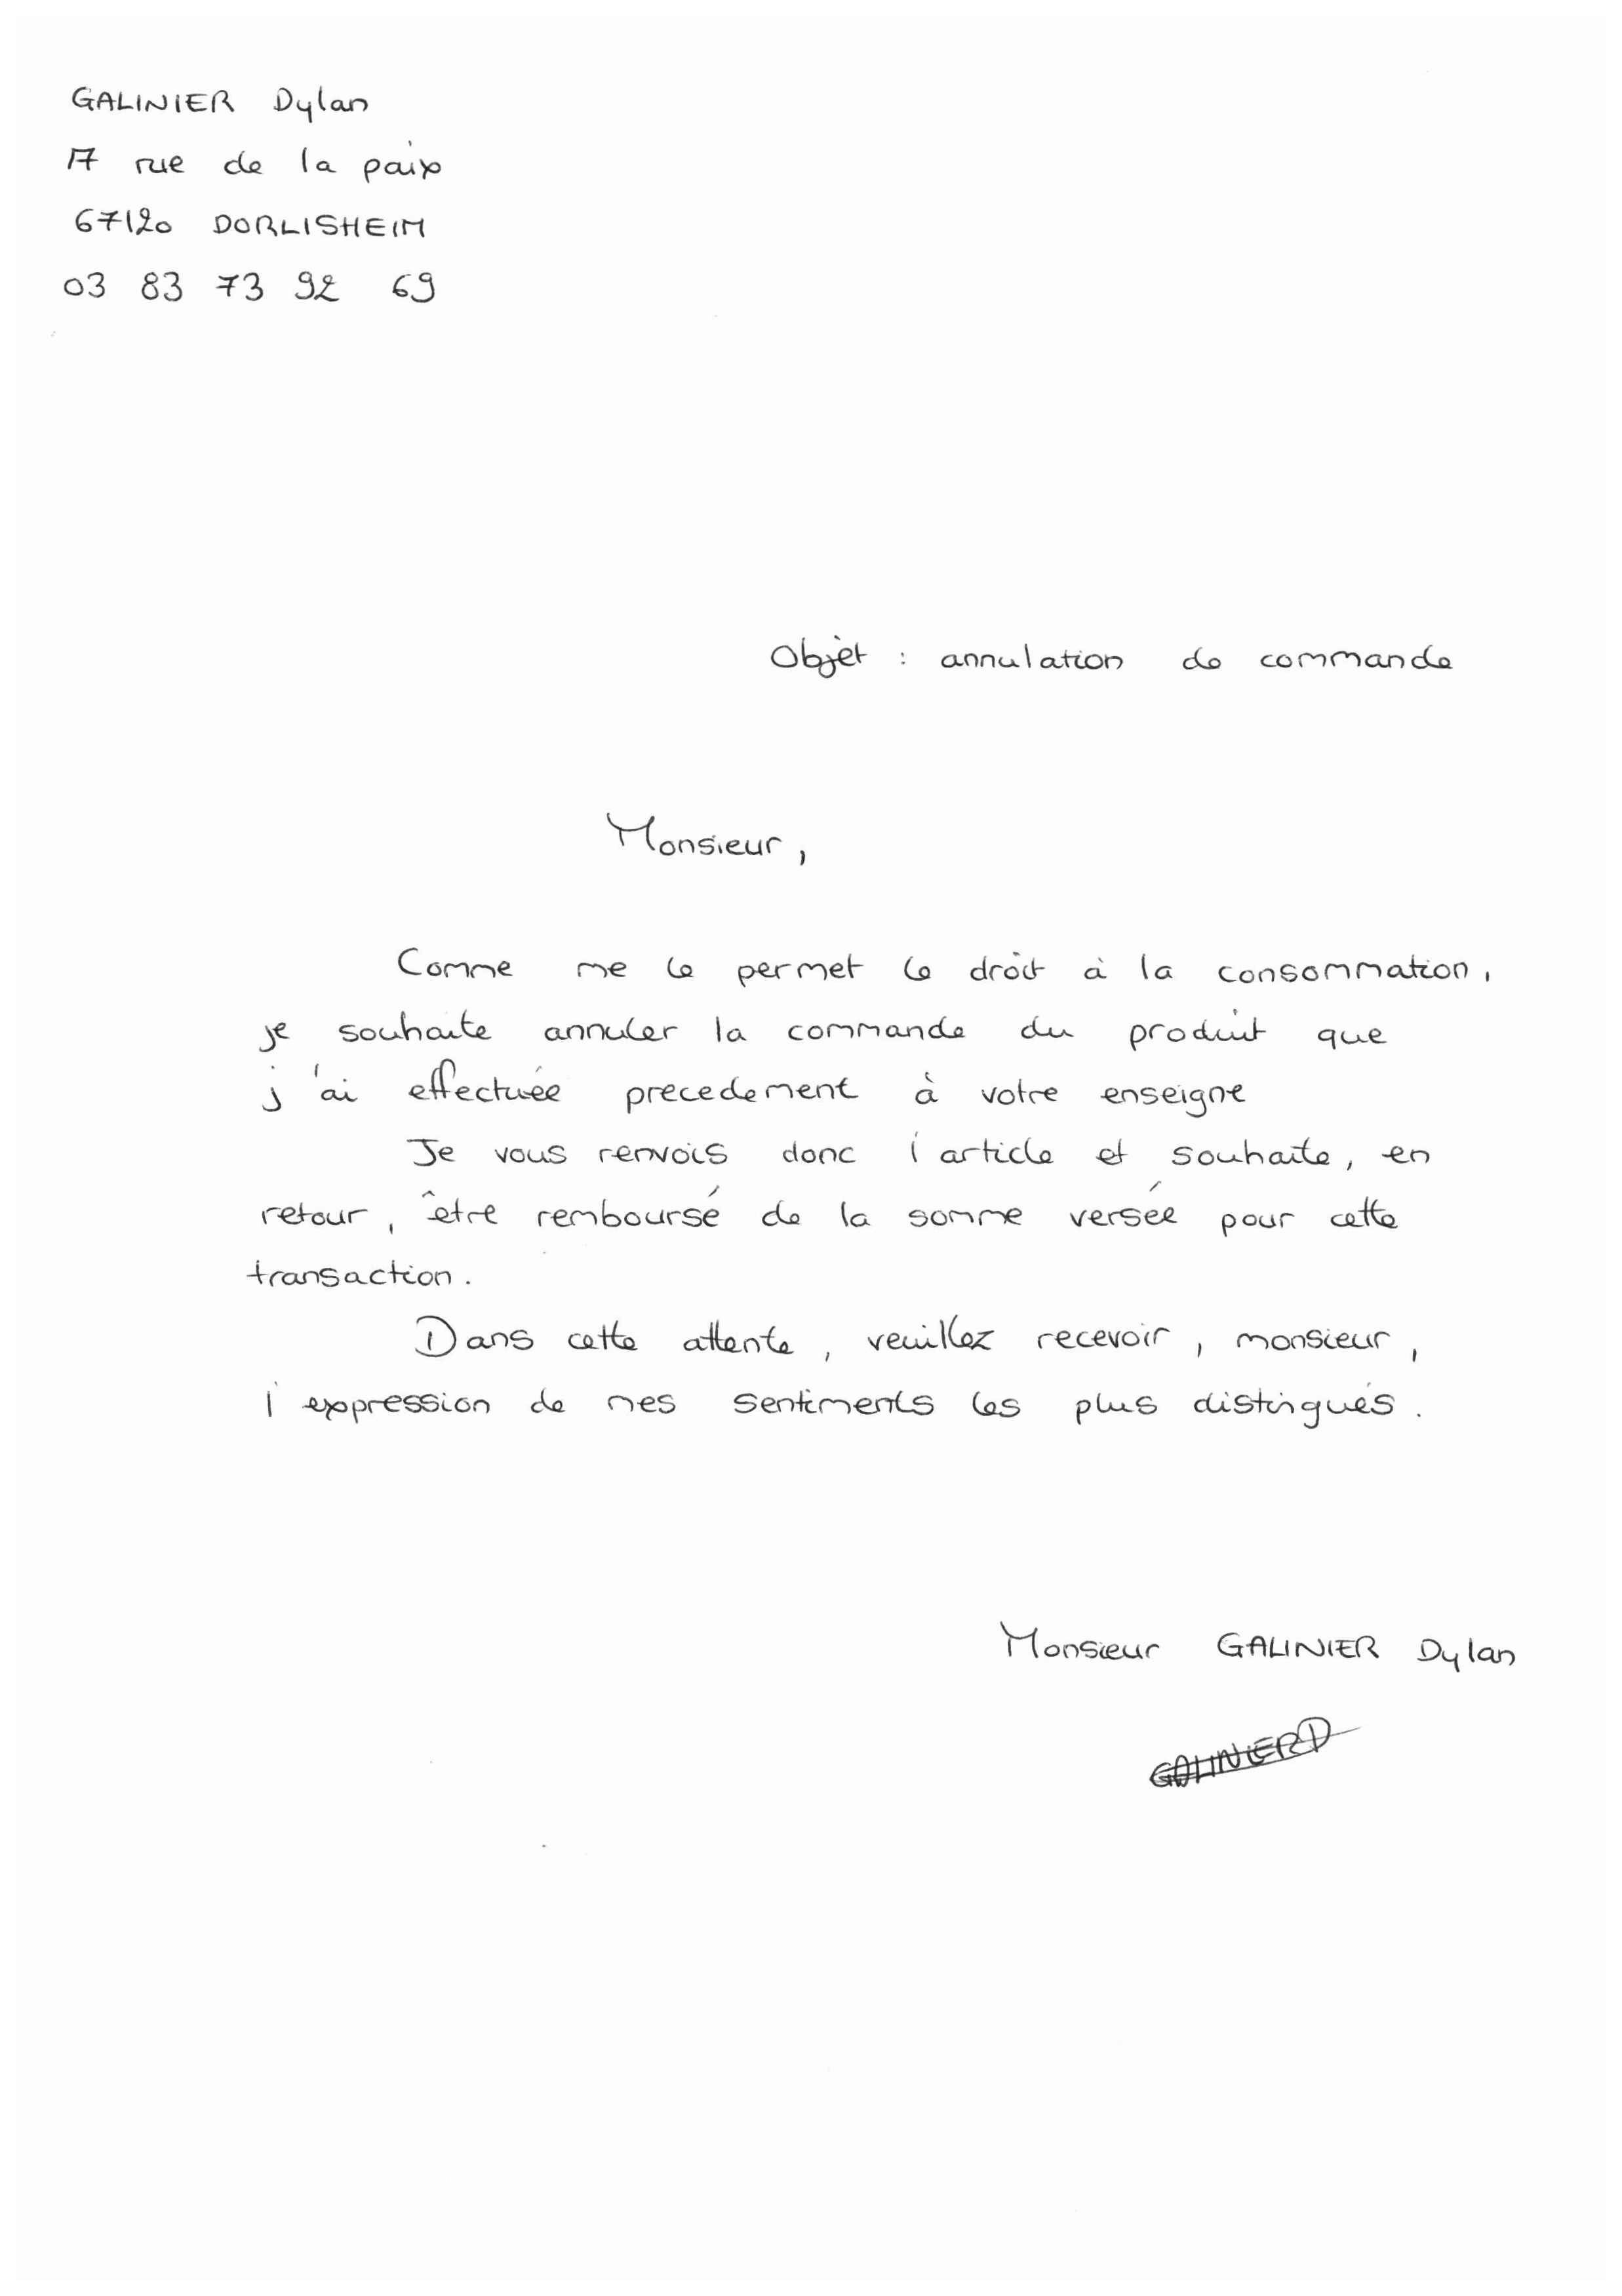 GALINIER Dylan
17 rue de la paix
67120 DORLISHEIM
03 83 73 92 69
Objet : annulation de commande
Monsieur,
Comme me le permet le droit à la consommation,
je souhaite annuler la commande du produit que
j'ai effectuée precedement à votre enseigne
Je vous renvois donc l'article et souhaite, en
retour, être remboursé de la somme versée pour cette
transaction.
Dans cette attente, veuillez recevoir, monsieur,
l'expression de mes sentiments les plus distingués.
Monsieur GALINIER Dylan
GALINIER D